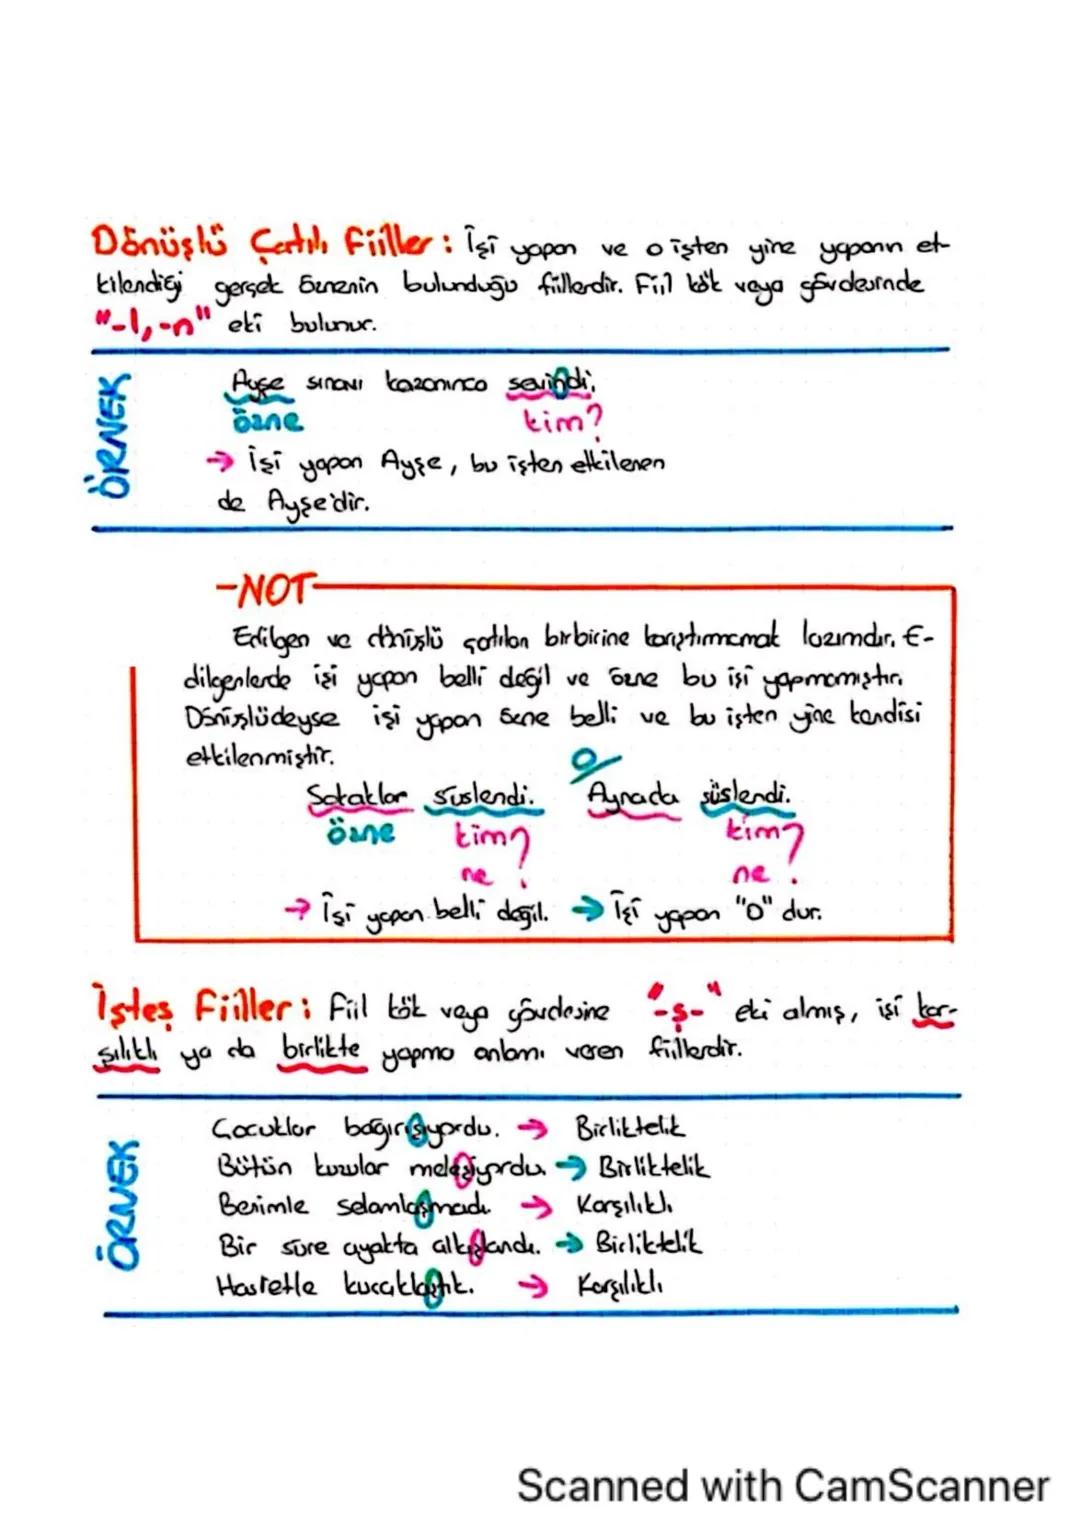 Dönüşlü Çatılı Fiiller: İşi yapan ve o işten yine yapanın et-
kilendiği gerçek öznenin bulunduğu fiillerdir. Fiil kök veya gövdesinde
"-l, -n" eki bulunur.
ÖRNEK
Ayşe sınavı kazanınca sevindi.
özne kim?
→ İşi yapan Ayşe, bu işten etkilenen
de Ayşe'dir.
-NOT-
Edilgen ve dönüşlü çatıları birbirine karıştırmamak lazımdır. E-
dilgenlerde işi yapan belli değil ve özne bu işi yapmamıştır.
Dönüşlüdeyse işi yapan özne belli ve bu işten yine kendisi
etkilenmiştir.
O/
Sokaklar süslendi. Aynada süslendi.
özne kim? kim?
ne ne
→ İşi yapan belli değil. → İşi yapan "O" dur.
İşteş Fiiller: Fiil kök veya gövdesine "-ş-" eki almış, işi kar-
şılıklı ya da birlikte yapma anlamı veren fiillerdir.
ÖRNEK
Çocuklar bağırışıyordu. → Birliktelik
Bütün kuzular meleşiyordu. → Birliktelik
Benimle selamlaşmadı. → Karşılıklı
Bir süre ayakta alkışlandı. → Birliktelik
Hasretle kucaklaştık. → Karşılıklı
Scanned with CamScanner